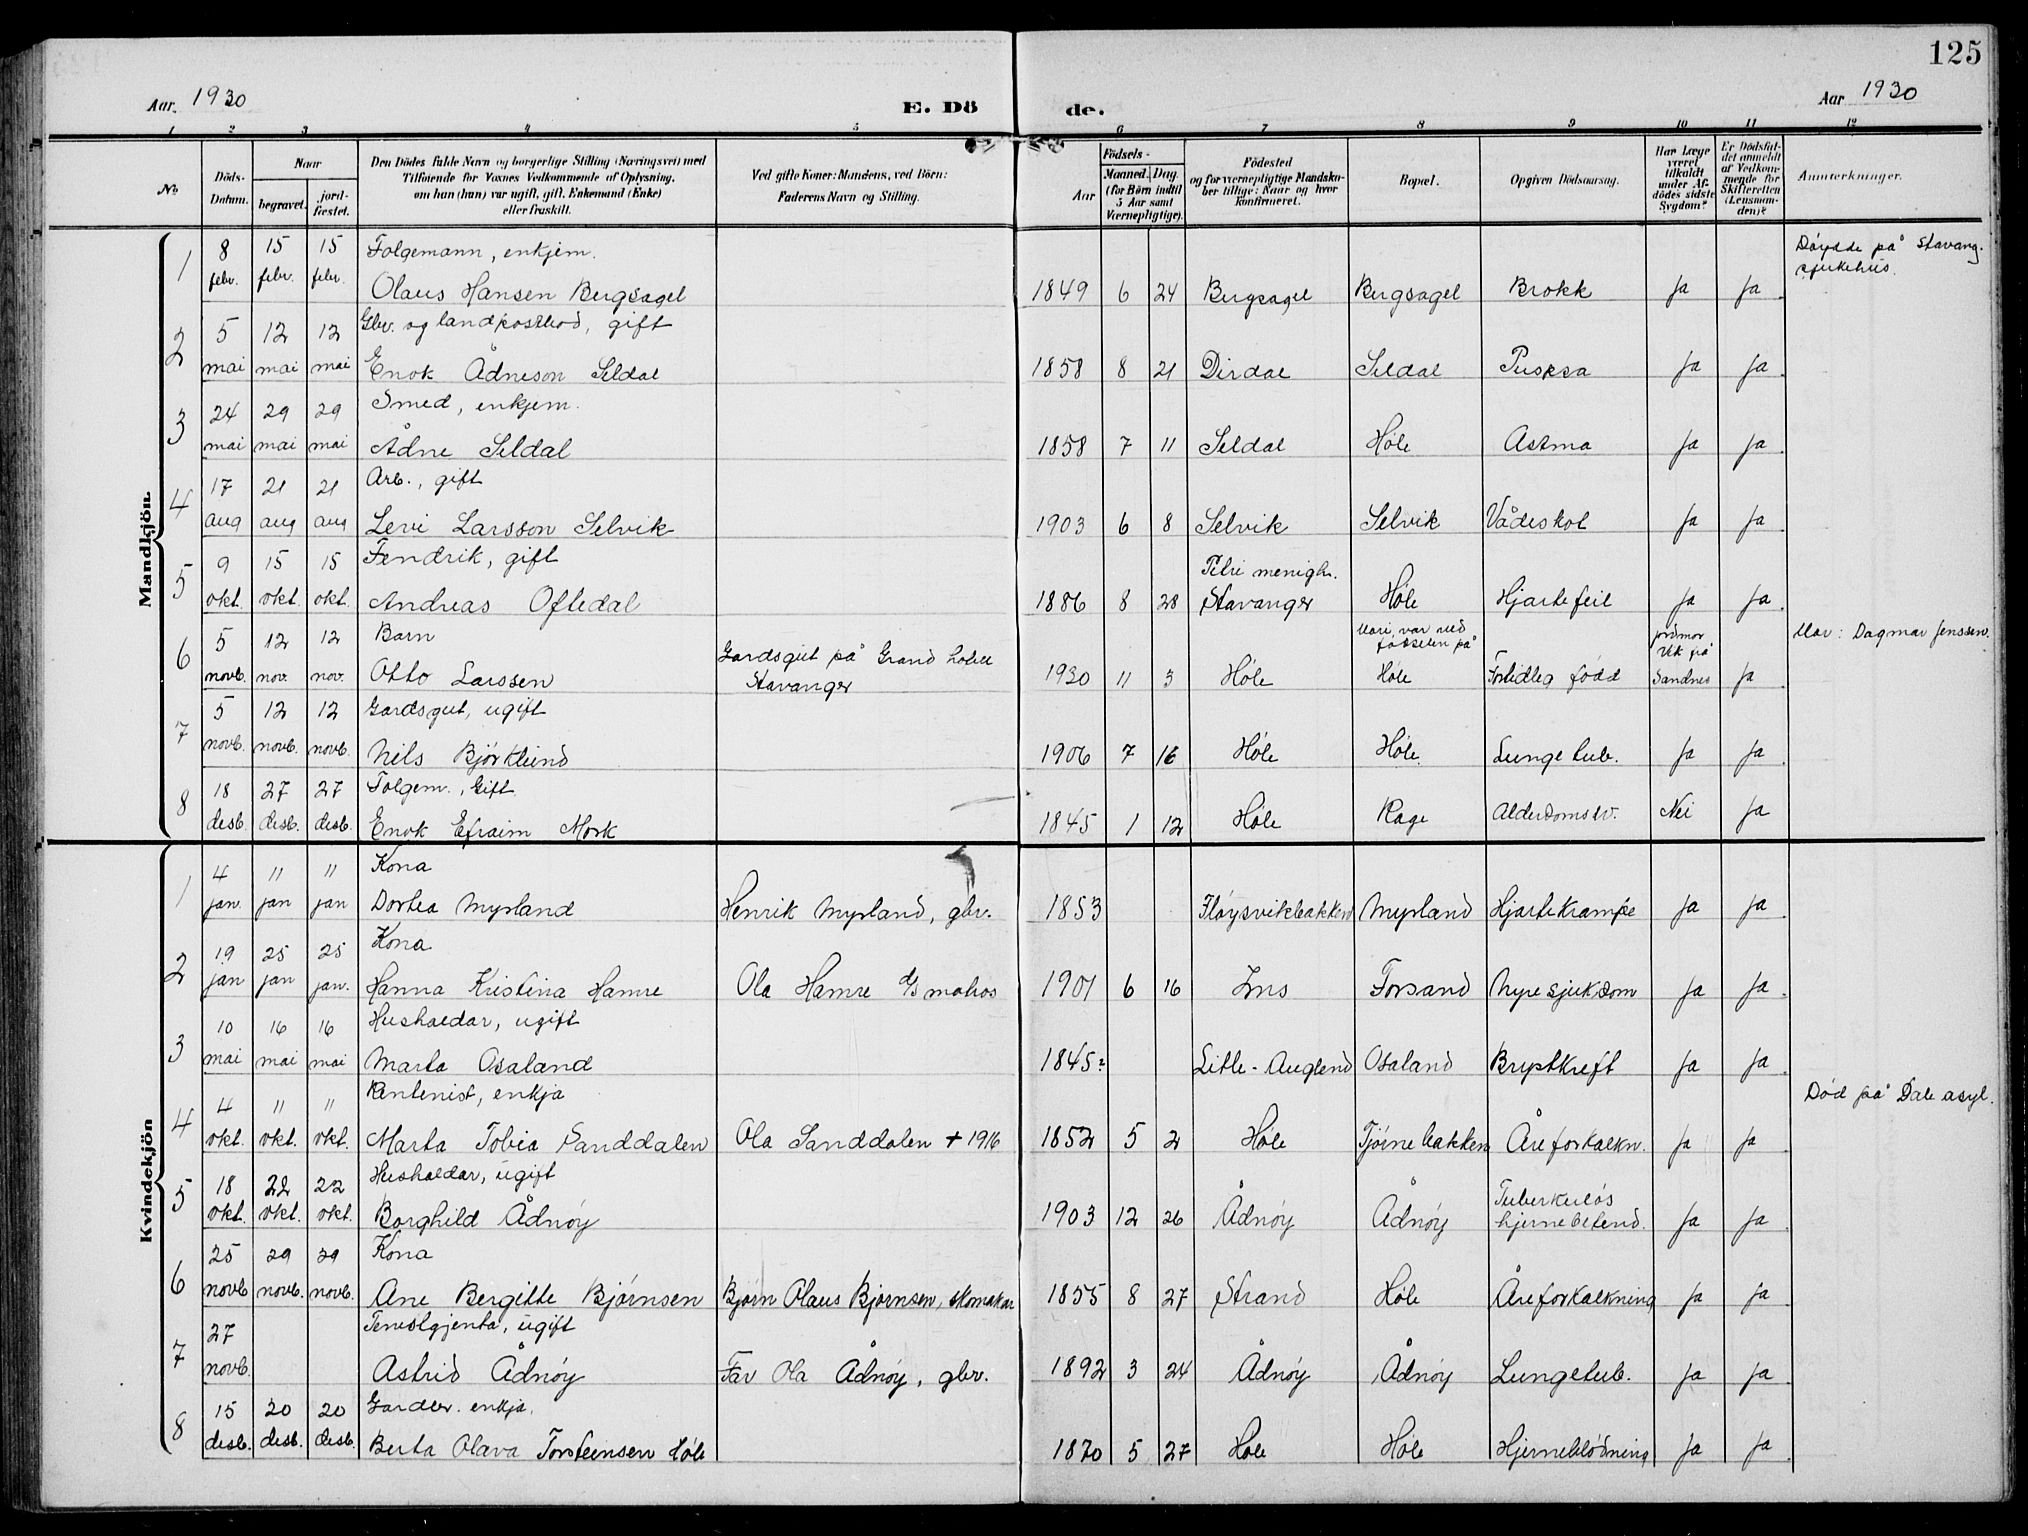 125
Aar 1930 E. Dö de. Aar 1930
1 2 3 4 5 6 7 8 9 10 11 12
No. Döds-Datum. Naar begravet. jordfæstet. Den Dödes fulde Navn og borgerlige Stilling (Næringsvei) med Tilføiende for Voxnes Vedkommende af Oplysning, om han (hun) var ugift, gift, Enkemand (Enke) eller fraskilt. Ved gifte Koner: Mandens, ved Börn: Faderens Navn og Stilling. Födsels- Aar Maaned. Dag. (for Börn indtil 5 Aar samt Værnepligtige). Födested og for værnepligtige Mandskaber tillige: Naar og hvor Konfirmeret. Bopæl. Opgiven Dödsaarsag. Har Læge været tilkaldt under Afdödes sidste Sygdom? Er Dödsfaldet anmeldt af Vedkommende for Skifteretten (Lensmanden)? Anmærkninger.
Mandkjön
1 8 febr. 15 febr. 15 febr. Folgemann, enkjem.
Olaus Hansen Bergsagel 1849 6 24 Bergsagel Bergsagel Brokk Ja Ja Döydde på Stavang. sjukehus.
2 5 mai 12 mai 12 mai Gbr. og landpostbod, gift
Enok Ådneson Seldal 1858 8 21 Dirdal Seldal Ja Ja
3 24 mai 29 mai 29 mai Smed, enkjem.
Ådne Seldal 1858 7 11 Seldal Høle Astma Ja Ja
4 17 aug 21 aug 21 aug Arb., gift
Levi Larsson Selvik 1903 6 8 Selvik Selvik Vådeskot Ja Ja
5 9 okt. 15 okt. 15 okt. Fendrik, gift
Andreas Oftedal 1886 8 28 Petri menigh. Stavanger Høle Hjartefeil Ja Ja
6 5 novb. 12 nov. 12 nov. Barn
Otto Larssen Gardsgut på Grand hotell Stavanger 1930 11 3 Høle Mori var ved fødselen på Høle Fortidleg fødd jordmor Vik på Sandnes Ja Mor: Dagmar Jenssen.
7 5 novb. 12 novb. 12 novb. Gardsgut, ugift
Nils Björklund 1906 7 16 Høle Høle. Lungetub. Ja Ja
8 18 desb. 27 desb. 27 desb. Folgem., Gift.
Enok Efraim Mork 1845 1 12 Høle Rage Alderdomsv. Nei Ja
Kvindekjön
1 4 jan. 11 jan 11 jan Kona
Dortea Myrland Henrik Myrland, gbr. 1853 Fløysvikbakken Myrland Hjartekrampe Ja Ja
2 19 jan 25 jan 25 jan. Kona
Hanna Kristina Hamre Ola Hamre G matros 1901 6 16 Ims Forsand Nyresjukdom Ja Ja
3 10 mai 16 mai 16 mai Hushaldar, ugift
Marta Osaland 1845? Litle-Auglend Osaland Brystkreft Ja Ja
4 4 okt. 11 okt. 11 okt. Rentenist, enkja
Marta Tobia Sanddalen Ola Sanddalen + 1916 1852 5 2 Høle Tjørnebakken Åreforkalkn. Ja Ja Død på Dale asyl.
5 18 okt. 22 okt. 22 okt. Hushaldar, ugift
Borghild Ådnøy 1903 12 26 Ådnøy Ådnøy Tuberkuløs hjernebetend. Ja Ja
6 25 novb. 29 novb. 29 novb. Kona
Ane Bergitte Bjørnsen Bjørn Olaus Bjørnsen, skomakar 1855 8 27 Strand Høle Åreforkalkning Ja Ja
7 27 novb. Tenestgjenta, ugift
Astrid Ådnøy Far Ola Ådnøy, gbr. 1892 3 24 Ådnøy Ådnøy Lungetub. Ja Ja
8 15 desb. 20 desb. 20 desb. Gardbr. enkja.
Berta Olava Torsteinsen Høle 1870 5 27 Høle Høle Hjerneblödning Ja Ja